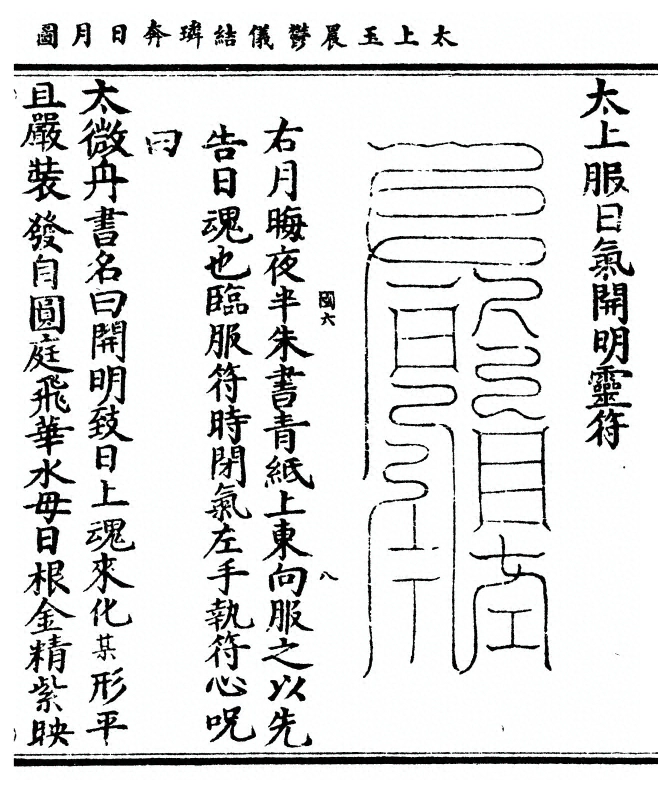 太上玉晨鬱儀結璘奔日月圖
太上服日氣開明靈符
國六
八
右月晦夜半朱書青紙上東向服之以先
告日魂也臨服符時閉氣左手執符心呪
曰
太微丹書名曰開明致日上魂來化某形平
旦嚴裝發自圓庭飛華水母日根金精紫映